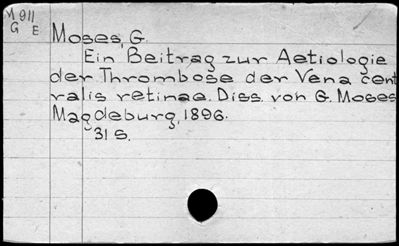 M 911
G E
Moses, G.
Ein Beitrag zur Aetiologie
der Thrombose der Vena cent
ralis retinae. Diss. von G. Moses
Magdeburg, 1896.
31 S.